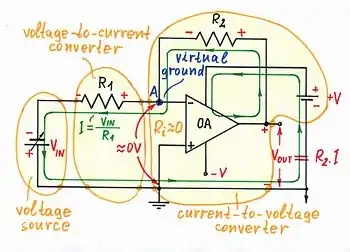 voltage-to-current
converter
R2
A
virtual
ground
R1
I = VIN/R1
Ri≈0
OA
+V
VIN
≈0V
-V
VOUT = R2.I
voltage
source
current-to-voltage
converter